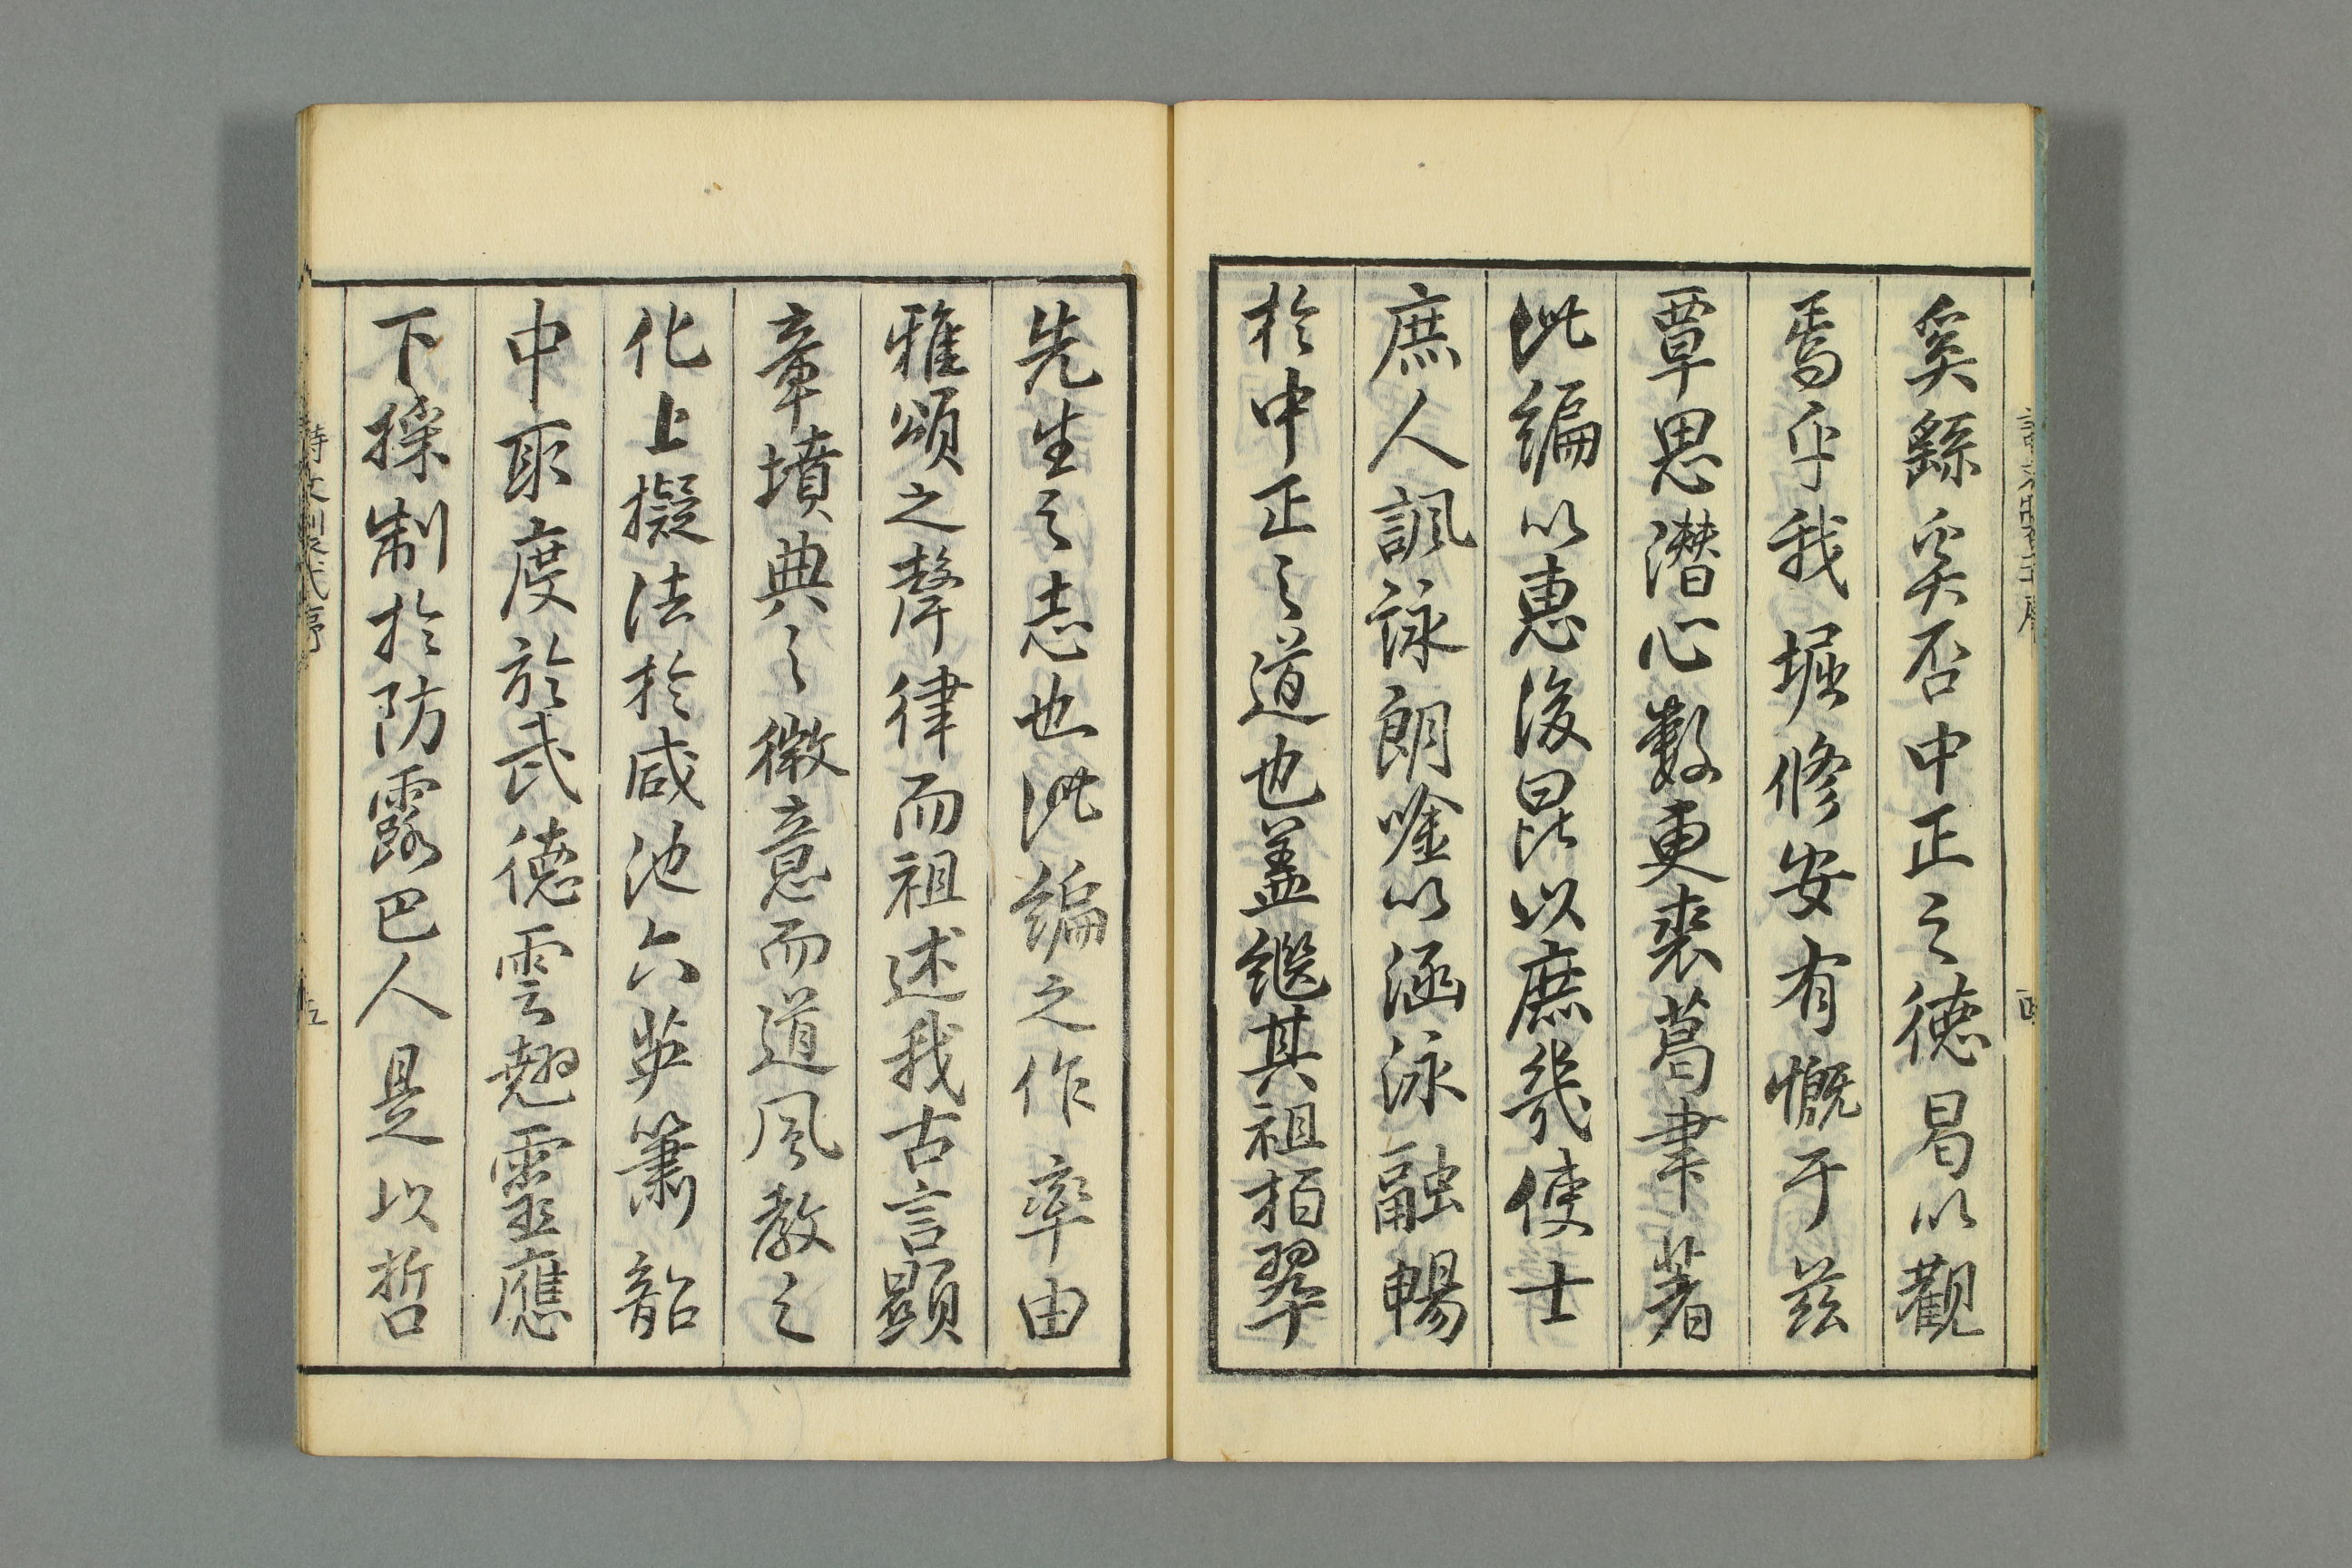 奚繇矣否中正之德曷以觀
焉乎我堀修安有慨于茲
覃思潛心數更裘葛聿著
此編以惠後昆以庶幾使士
庶人諷詠朗唫以涵泳融暢
於中正之道也蓋繼其祖栢翠
先生之志也此編之作率由
雅頌之聲律而祖述我古言顯
章墳典之微意而道風教之
化上擬法於咸池六英簫韶
中取度於武德雲翹靈應
下採制於防露巴人是以哲